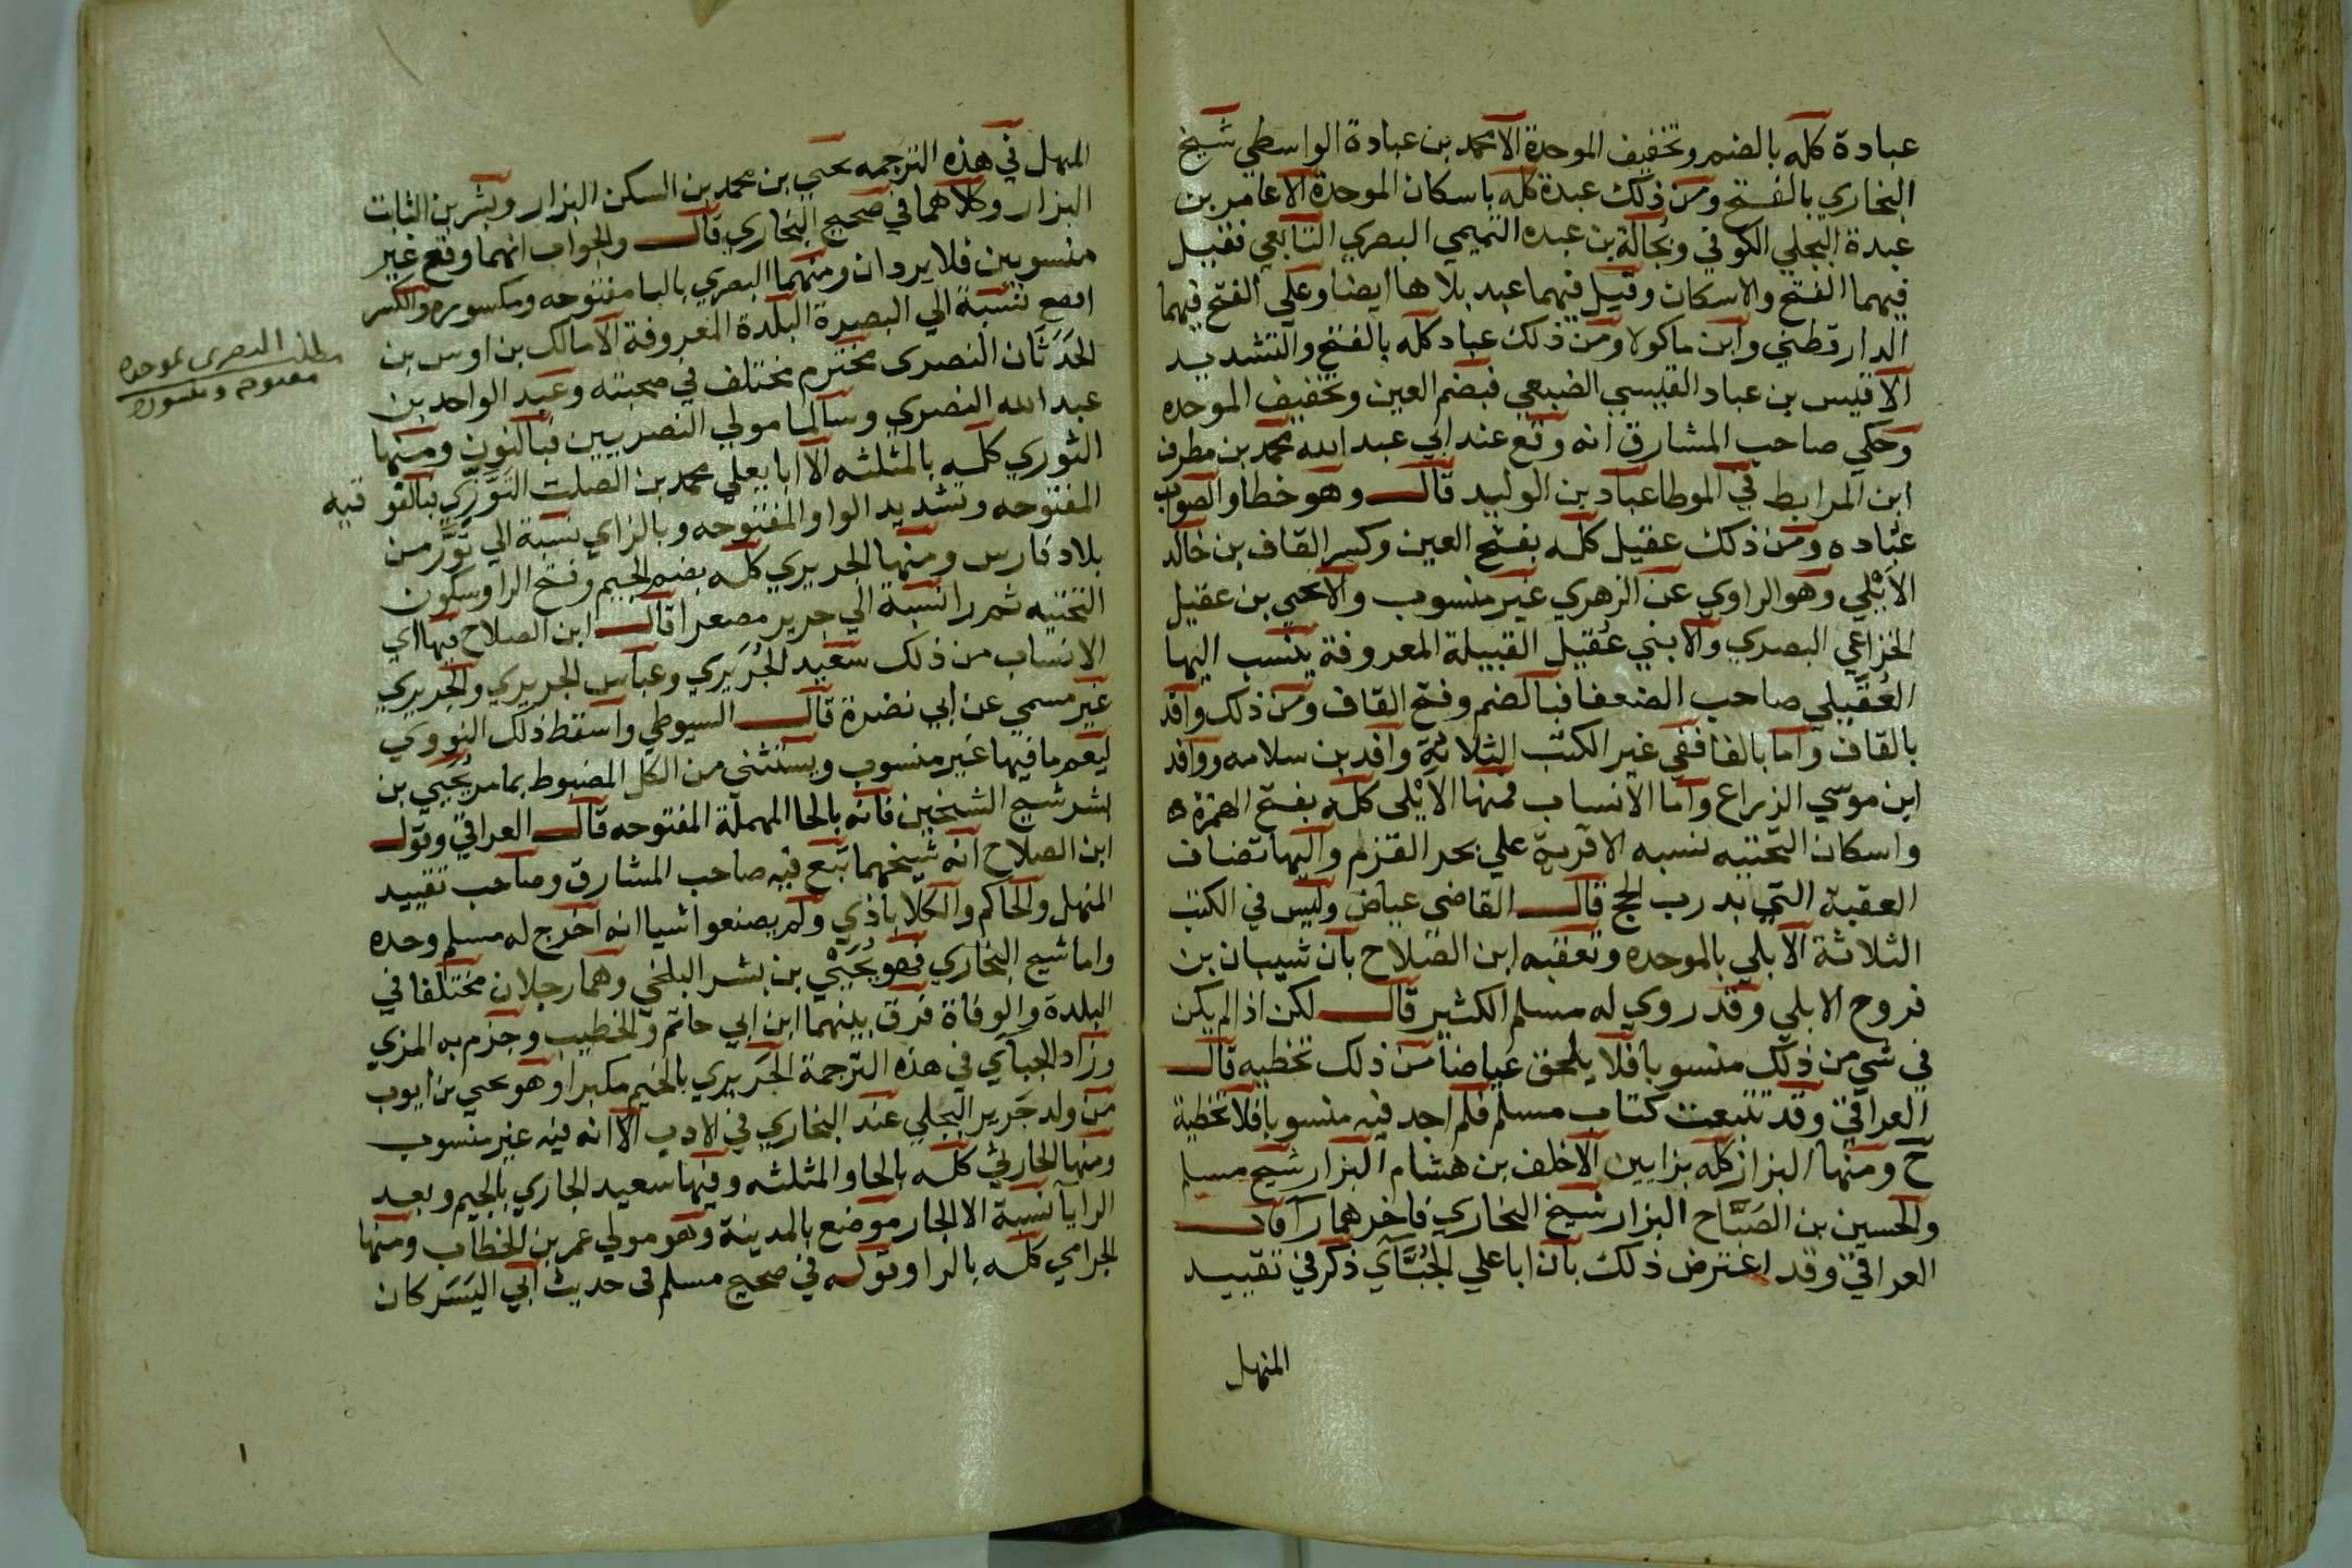 عبادة كله بالضم وتخفيف الموحدة الا محمد بن عبادة الواسطي شيخ
البخاري بالفتح ومن ذلك عبدة كله باسكان الموحدة الا عامر بن
عبدة البجلي الكوفي وبجالة بن عبده التميمي البصري التابعي فقيل
فيهما الفتح والاسكان وقيل فيهما عبد بلا ها ايضا وعلي الفتح فيهما
الدارقطني وابن ماكولا ومن ذلك عباد كله بالفتح والتشديد
الا قيس بن عباد القيسي الضبعي فبضم العين وتخفيف الموحده
وحكي صاحب المشارق انه وقع عند ابي عبد الله محمد بن مطرف
ابن المرابط في الموطا عباد بن الوليد قال وهو خطا والصواب
عباده ومن ذلك عقيل كله بفتح العين وكسر القاف بن خالد
الأيْلي وهو الراوي عن الزهري غير منسوب والا يحيي بن عقيل
الخزاعي البصري والا بني عُقيل القبيلة المعروفة ينسب اليها
العُقَيلي صاحب الضعفا فبالضم وفتح القاف ومن ذلك واقد
بالقاف واما بالفا ففي غير الكتب الثلاثة وافد بن سلامه ووافد
ابن موسي الزراع واما الانساب فمنها الأيْلى كله بفتح الهمزه
واسكان التحتيه نسبه الا قرية علي بحر القلزم واليها تضاف
العقبة التي بدرب الحج قال القاضي عياض وليس في الكتب
الثلاثة الابلي بالموحده وتعقبه ابن الصلاح بان شيبان بن
فروح الابلي وقد روي له مسلم الكثير قال لكن اذا لم يكن
في شي من ذلك منسوبا فلا يلحق عياضا من ذلك تخطيه قال
العراقي وقد تتبعت كتاب مسلم فلم اجد فيه منسوبا فلا تخطية
ح ومنها البزاز كله بزايين الا خلف بن هشام البزار شيخ مسلم
والحسين بن الصَبَّاح البزار شيخ البخاري فاخرهما را قال
العراقي وقد اعترض ذلك بان ابا علي الجُبَّآي ذكر في تقييد
المنهل
المنهل في هذه الترجمه يحيي بن محمد بن السكن البزار وبشر بن الثابت
البزار وكلاهما في صحيح البخاري قال والجواب انهما وقع غير
منسوبين فلا يردان ومنهما البصري بالبا مفتوحه ومكسوره والكسر
افصح نسبة الي البصرة البلدة المعروفة الا مالك بن اوس بن
الحَدَثَان النصري مخترم مختلف في صحبته وعبد الواحد بن
عبد الله النصري وسالما مولي النصريين فبالنون ومنها
الثوري كله بالمثلثه الا ابا يعلي محمد بن الصلت التَوَّزي فبالفوقيه
المفتوحه وتشديد الواو المفتوحه وبالزاي نسبة الي تَوَّز من
بلاد فارس ومنها الجريري كله بضم الجيم وفتح الرا وسكون
التحتيه ثم را نسبة الي جرير مصغرا قال ابن الصلاح فيها اي
الانساب من ذلك سعيد الجُرَيري وعباس الجريري والجريري
غير مسمي عن ابي نضرة قال السيوطي واسقط ذلك النووي
ليعم ما فيها غير منسوب ويستثني من الكل المضبوط بما مر يُحيي بن
بشر شيخ الشيخين فانه بالحا المهملة المفتوحه قال العراقي وقول
ابن الصلاح انه شيخهما تبع فيه صاحب المشارق وصاحب تقييد
المنهل والحاكم والكلاباذي ولم يصنعوا شيا انه اخرج له مسلم وحده
واما شيخ البخاري فهو يُحيْي بن بشر البلخي وهما رجلان مختلفا في
البلدة والوفاة فرق بينهما ابن ابي حاتم والخطيب وجزم به المزي
وزاد الجبآي في هذه الترجمة الجَريري بالجيم مكبرا وهو يحيي بن ايوب
من ولد جَرير البجلي عند البخاري في الادب الا انه فيه غير منسوب
ومنها الحارثي كله بالحا والمثلثه وفيها سعيد الجاري بالجيم وبعد
الرا يا نسبة الا الجار موضع بالمدينة وهو مولي عمر بن الخطاب ومنها
الجرامي كله بالرا وقوله في صحيح مسلم فى حديث ابي اليَسَر كان
مطلب البصرى بموحده
مفتوحه ومكسوره